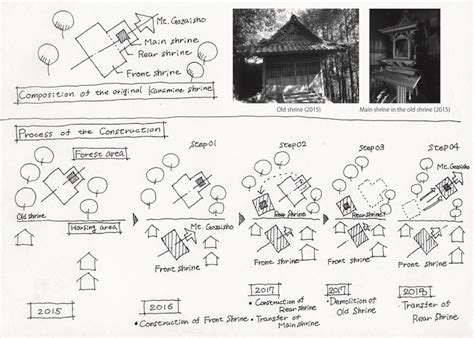 Mt. Gozaisho
Main shrine
Rear shrine
Front shrine
Composition of the original Kanamine shrine
Old shrine (2015)
Main shrine in the old shrine (2015)
Process of the Construction
Forest area
Step 01
Step 02
Step 03
Step 04
Mt. Gozaisho
Old shrine
Housing area
Mt. Gozaisho
Rear Shrine
Rear Shrine
Front shrine
Front shrine
Front shrine
2015
2016
• Construction of Front Shrine
2017
• Construction of
Rear shrine
• Transfer of
Main shrine
2017
• Demolition of
Old Shrine
2018
• Transfer of
Rear shrine